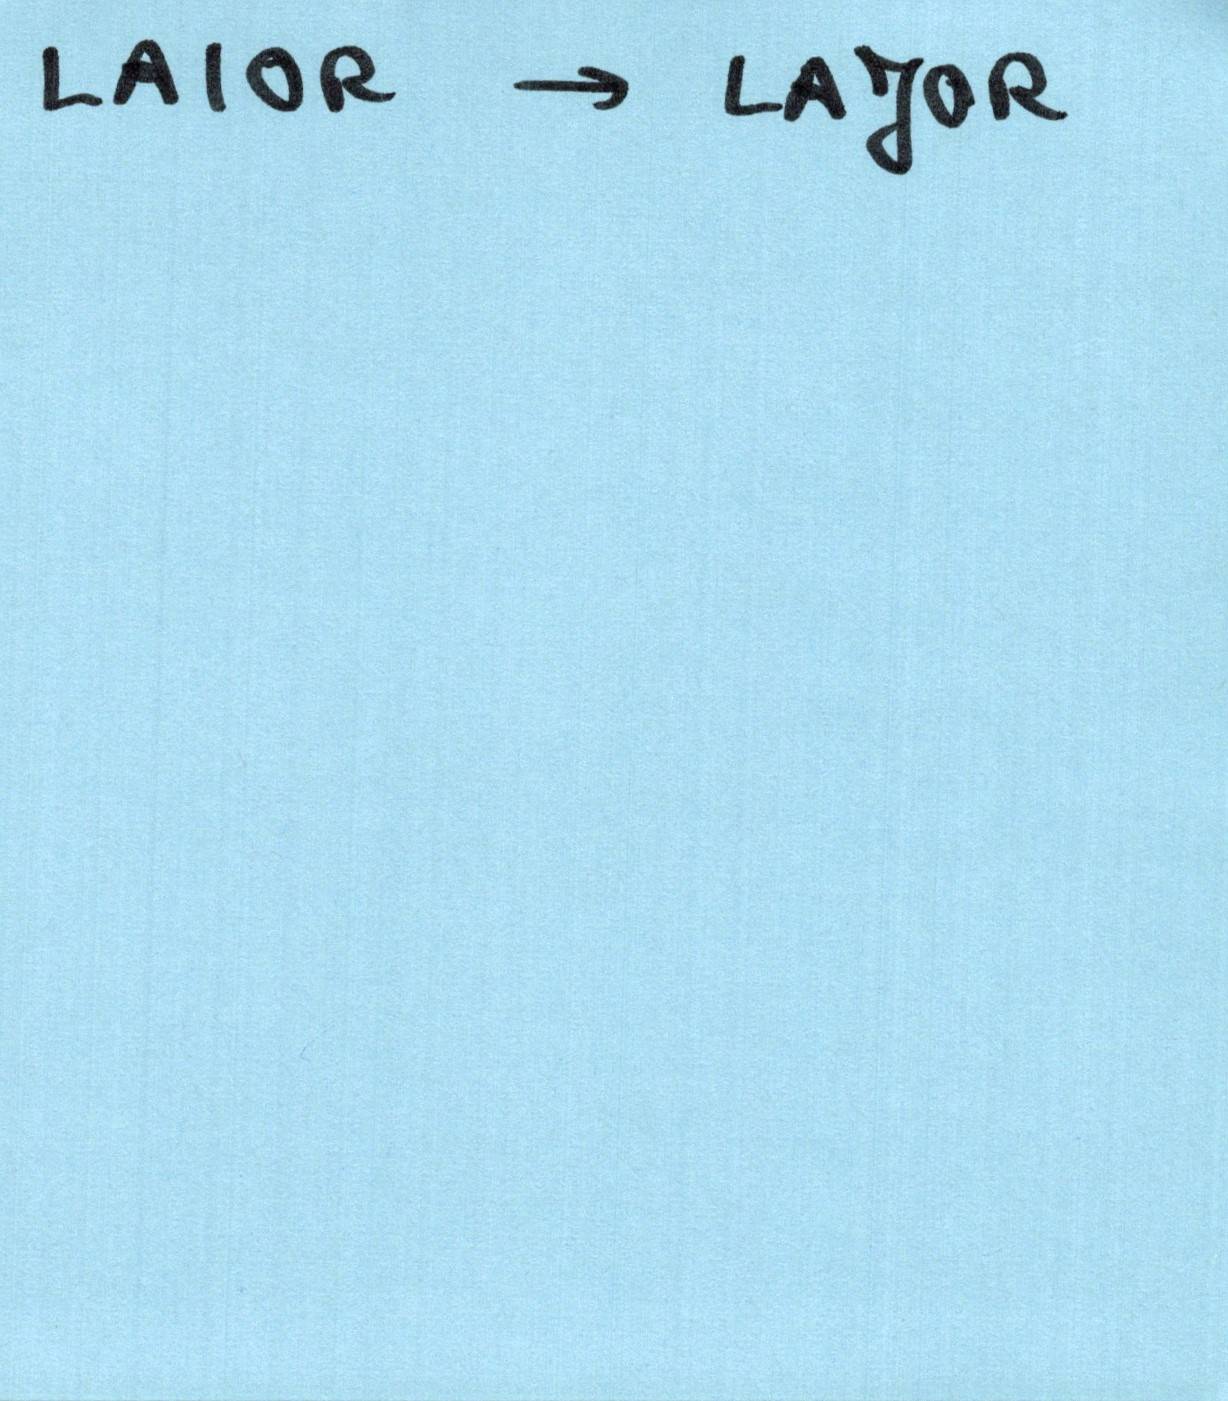 LAIOR → LAJOR